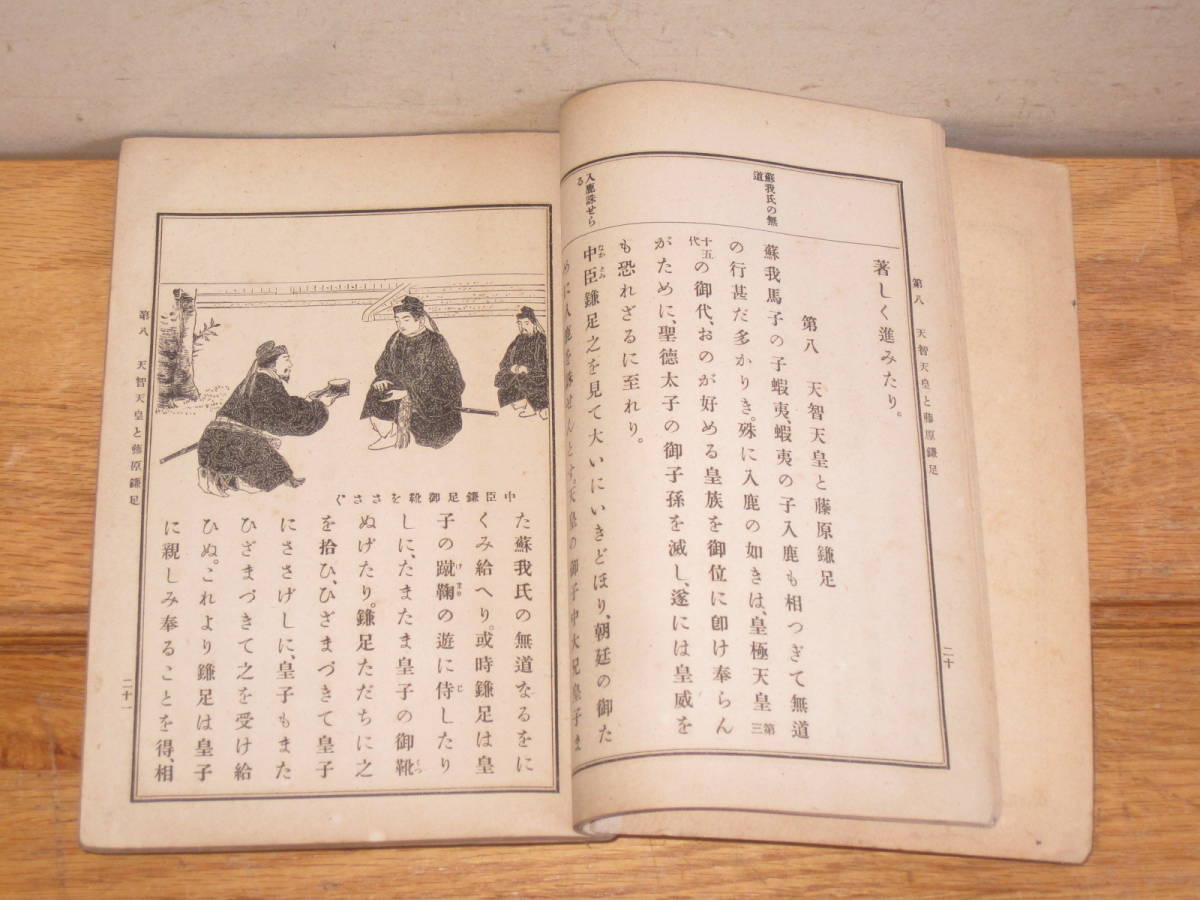 著しく進みたり。
第八 天智天皇と藤原鎌足
蘇我氏の無
道
蘇我馬子の子蝦夷、蝦夷の子入鹿も相つぎて無道
の行甚だ多かりき。殊に入鹿の如きは、皇極天皇第三
十五代の御代、おのが好める皇族を御位に卽け奉らん
がために、聖德太子の御子孫を滅し、遂には皇威を
も恐れざるに至れり。
入鹿誅せら
る
中臣鎌足之を見て大いにいきどほり、朝廷の御た
めに入鹿を誅せんとす。天皇の御子中大兄皇子ま
第八 天智天皇と藤原鎌足
二十
中臣鎌足御靴をささぐ
た蘇我氏の無道なるをに
くみ給へり。或時鎌足は皇
子の蹴鞠の遊に侍したり
しに、たまたま皇子の御靴
ぬげたり。鎌足ただちに之
を拾ひ、ひざまづきて皇子
にささげしに、皇子もまた
ひざまづきて之を受け給
ひぬ。これより鎌足は皇子
に親しみ奉ることを得、相
第八 天智天皇と藤原鎌足
二十一